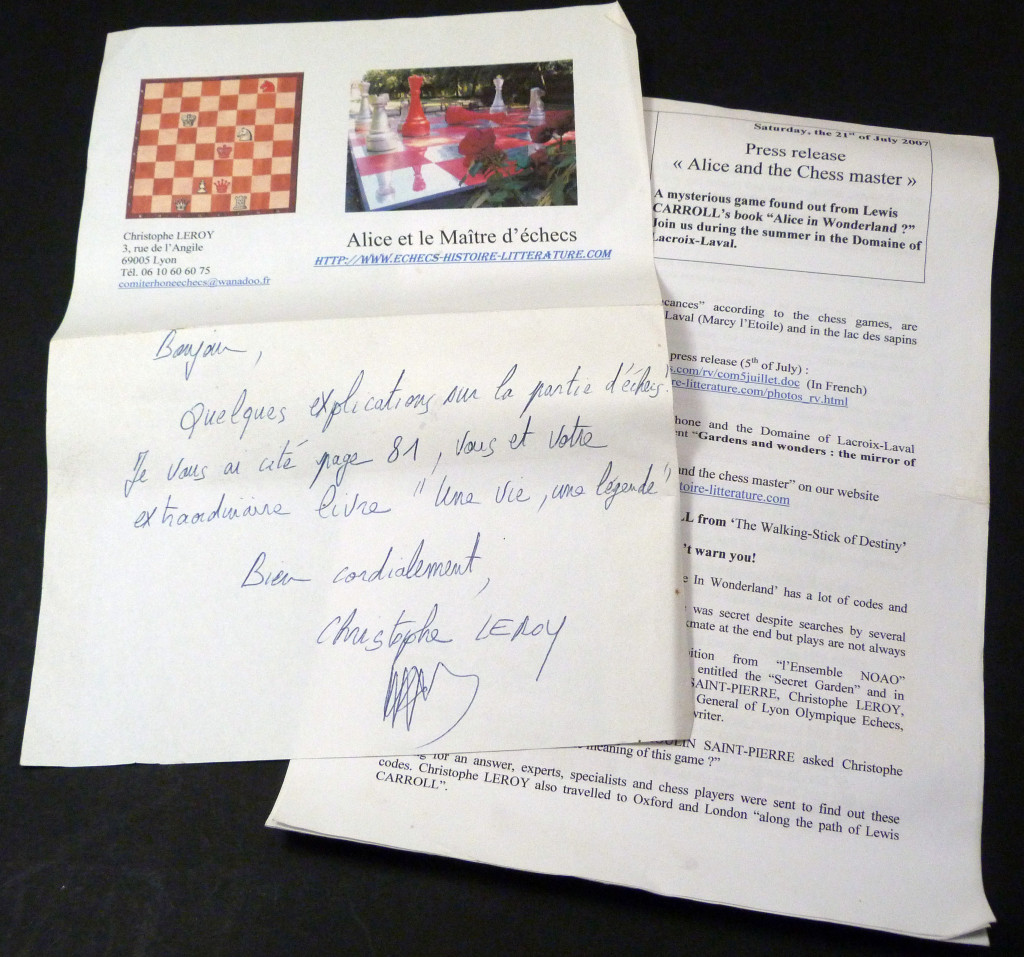 Christophe LEROY
3, rue de l'Angile
69005 Lyon
Tél. 06 10 60 60 75
comiterhoneechecs@wanadoo.fr
Alice et le Maître d'échecs
HTTP://WWW.ECHECS-HISTOIRE-LITTERATURE.COM
Bonjour,
Quelques explications sur la partie d'échecs!
Je vous ai cité page 81, vous et votre
extraordinaire livre "Une vie, une légende"
Bien cordialement,
Christophe LEROY
Saturday, the 21st of July 2007
Press release
« Alice and the Chess master »
A mysterious game found out from Lewis
CARROLL's book "Alice in Wonderland ?"
Join us during the summer in the Domaine of
Lacroix-Laval.
cances" according to the chess games, are
Laval (Marcy l'Etoile) and in the lac des sapins
press release (5th of July) :
s.com/rv/com5juillet.doc (In French)
re-litterature.com/photos_rv.html
hone and the Domaine of Lacroix-Laval
ent "Gardens and wonders : the mirror of
and the chess master" on our website
toire-litterature.com
LL from 'The Walking-Stick of Destiny'
't warn you!
e In Wonderland' has a lot of codes and
was secret despite searches by several
kmate at the end but plays are not always
ition from "l'Ensemble NOAO"
entitled the "Secret Garden" and in
SAINT-PIERRE, Christophe LEROY,
General of Lyon Olympique Echecs,
writer.
SAINT-PIERRE asked Christophe
meaning of this game ?"
for an answer, experts, specialists and chess players were sent to find out these
codes. Christophe LEROY also travelled to Oxford and London "along the path of Lewis
CARROLL".